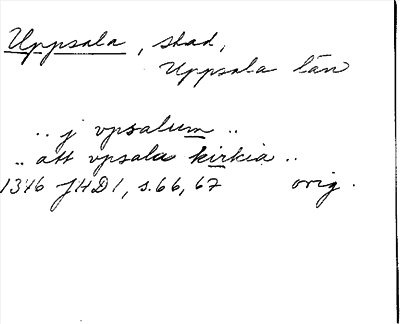 Uppsala, stad,
Uppsala län
.. j vpsalum ..
.. att vpsala kirkia ..
1346 JHD1, s.66, 67 orig.